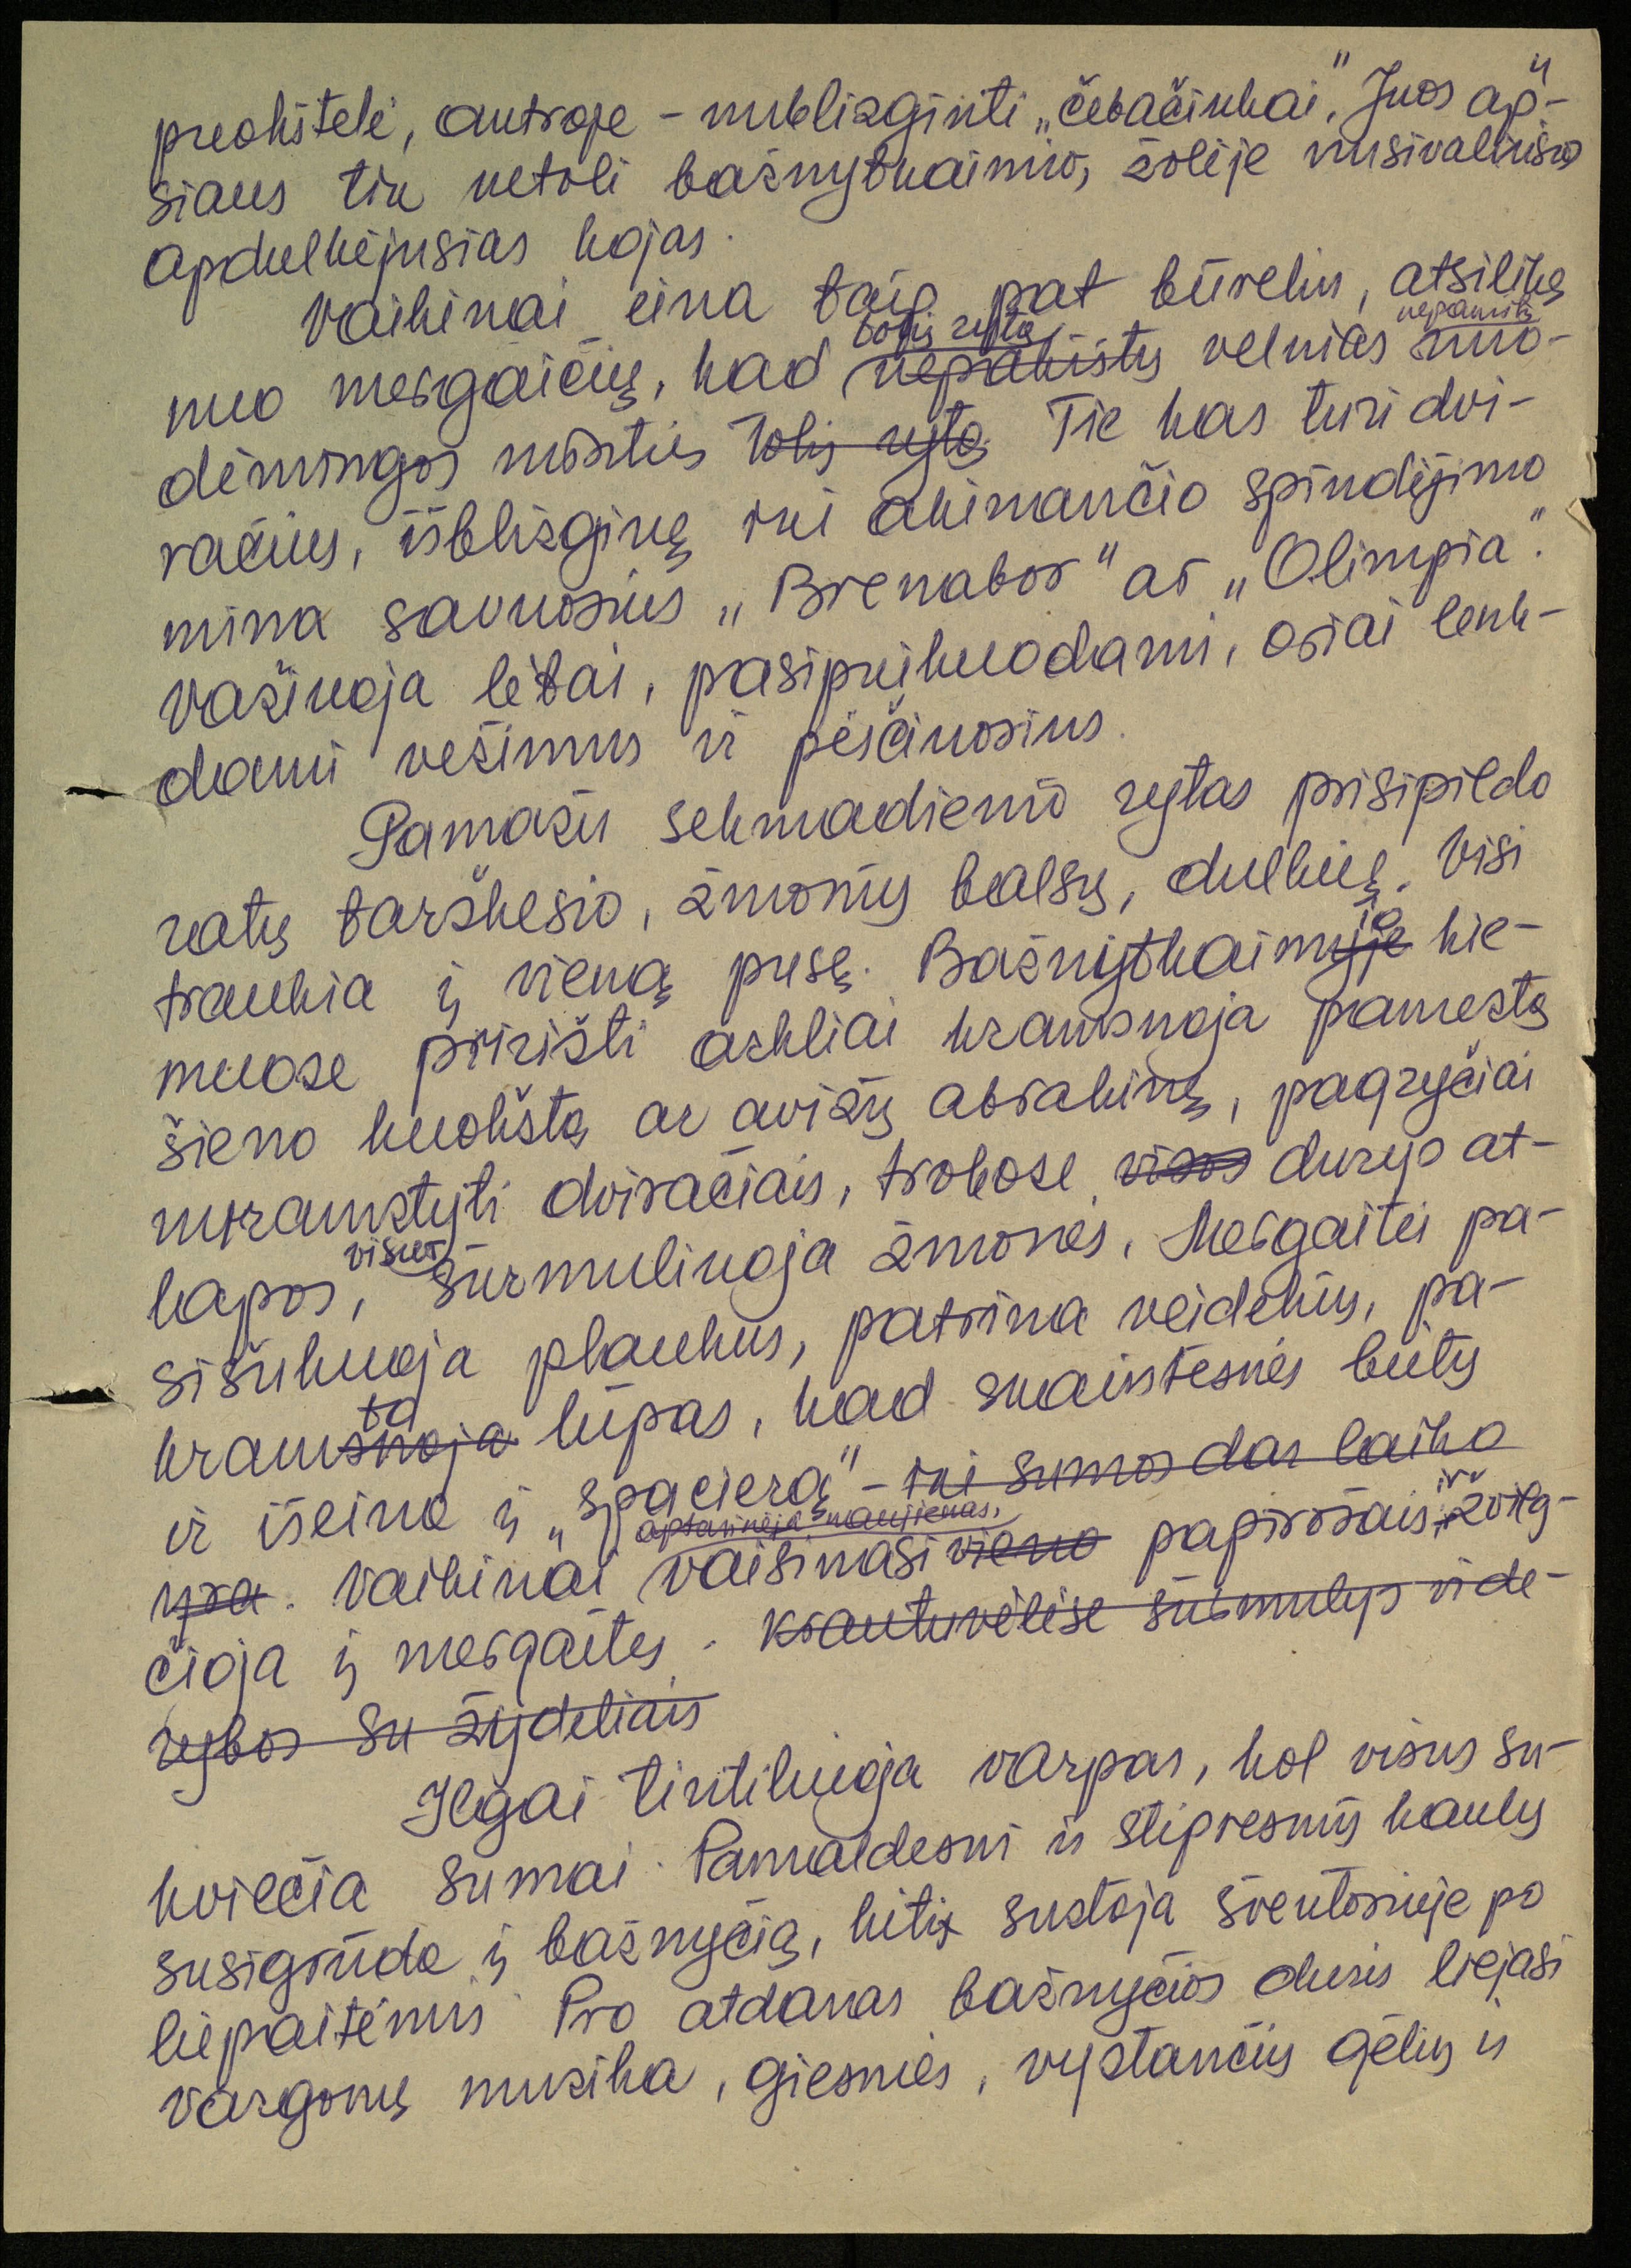 puokštelė, antroje – nublizginti „čebačiukai“. Juos ap-
siaus tik netoli bažnytkaimio, žolėje nusivaliusio
apdulkėjusias kojas.
Vaikinai eina taip pat būreliu, atsilikę
tokį rytą nepamiktų
nuo mergaičių, kad nepakištų velnias nuo-
dėmingos minties tokį rytą. Tie kas turi dvi-
račius, išblizginę iki akinančio spindėjimo
mina savuosius „Brenabor“ ar „Olimpia“.
Važiuoja lėtai, pasipuikuodami, oriai lenk-
dami vežimus ir pėsčiuosius.
Pamažu sekmadienio rytas prisipildo
ratų tarškesio, žmonių balsų, dulkių. Visi
traukia į vieną pusę. Bažnytkaimyje kie-
io
muose pririšti arkliai kramsnoja pamestą
šieno kuokštą ar avižų abrakinę, pagryčiai
nuramstyti dviračiais, trobose visos durys at-
lapos, visur šurmuliuoja žmonės. Mergaitės pa-
sišukuoja plaukus, patrina veidelius, pa-
to
kramsnoja lūpas, kad skaistesnės būtų
ir išeina į „spacierą“ – iki sumos dar laiko
aptarinėja naujienas,
yra. Vaikinai vaišinasi vieno papirosais ir žvilg-
čioja į mergaites. Krautuvėlėse šurmulys vide-
rybos su žydeliais
Ilgai tintiliuoja varpas, kol visus su-
kviečia sumai. Pamaldesni ir stipresnių kaulų
susigrūda į bažnyčią, kiti sustoja šventoriuje po
liepaitėmis. Pro atdaras bažnyčios duris liejasi
vargonų muzika, giesmės, vystančių gėlių ir